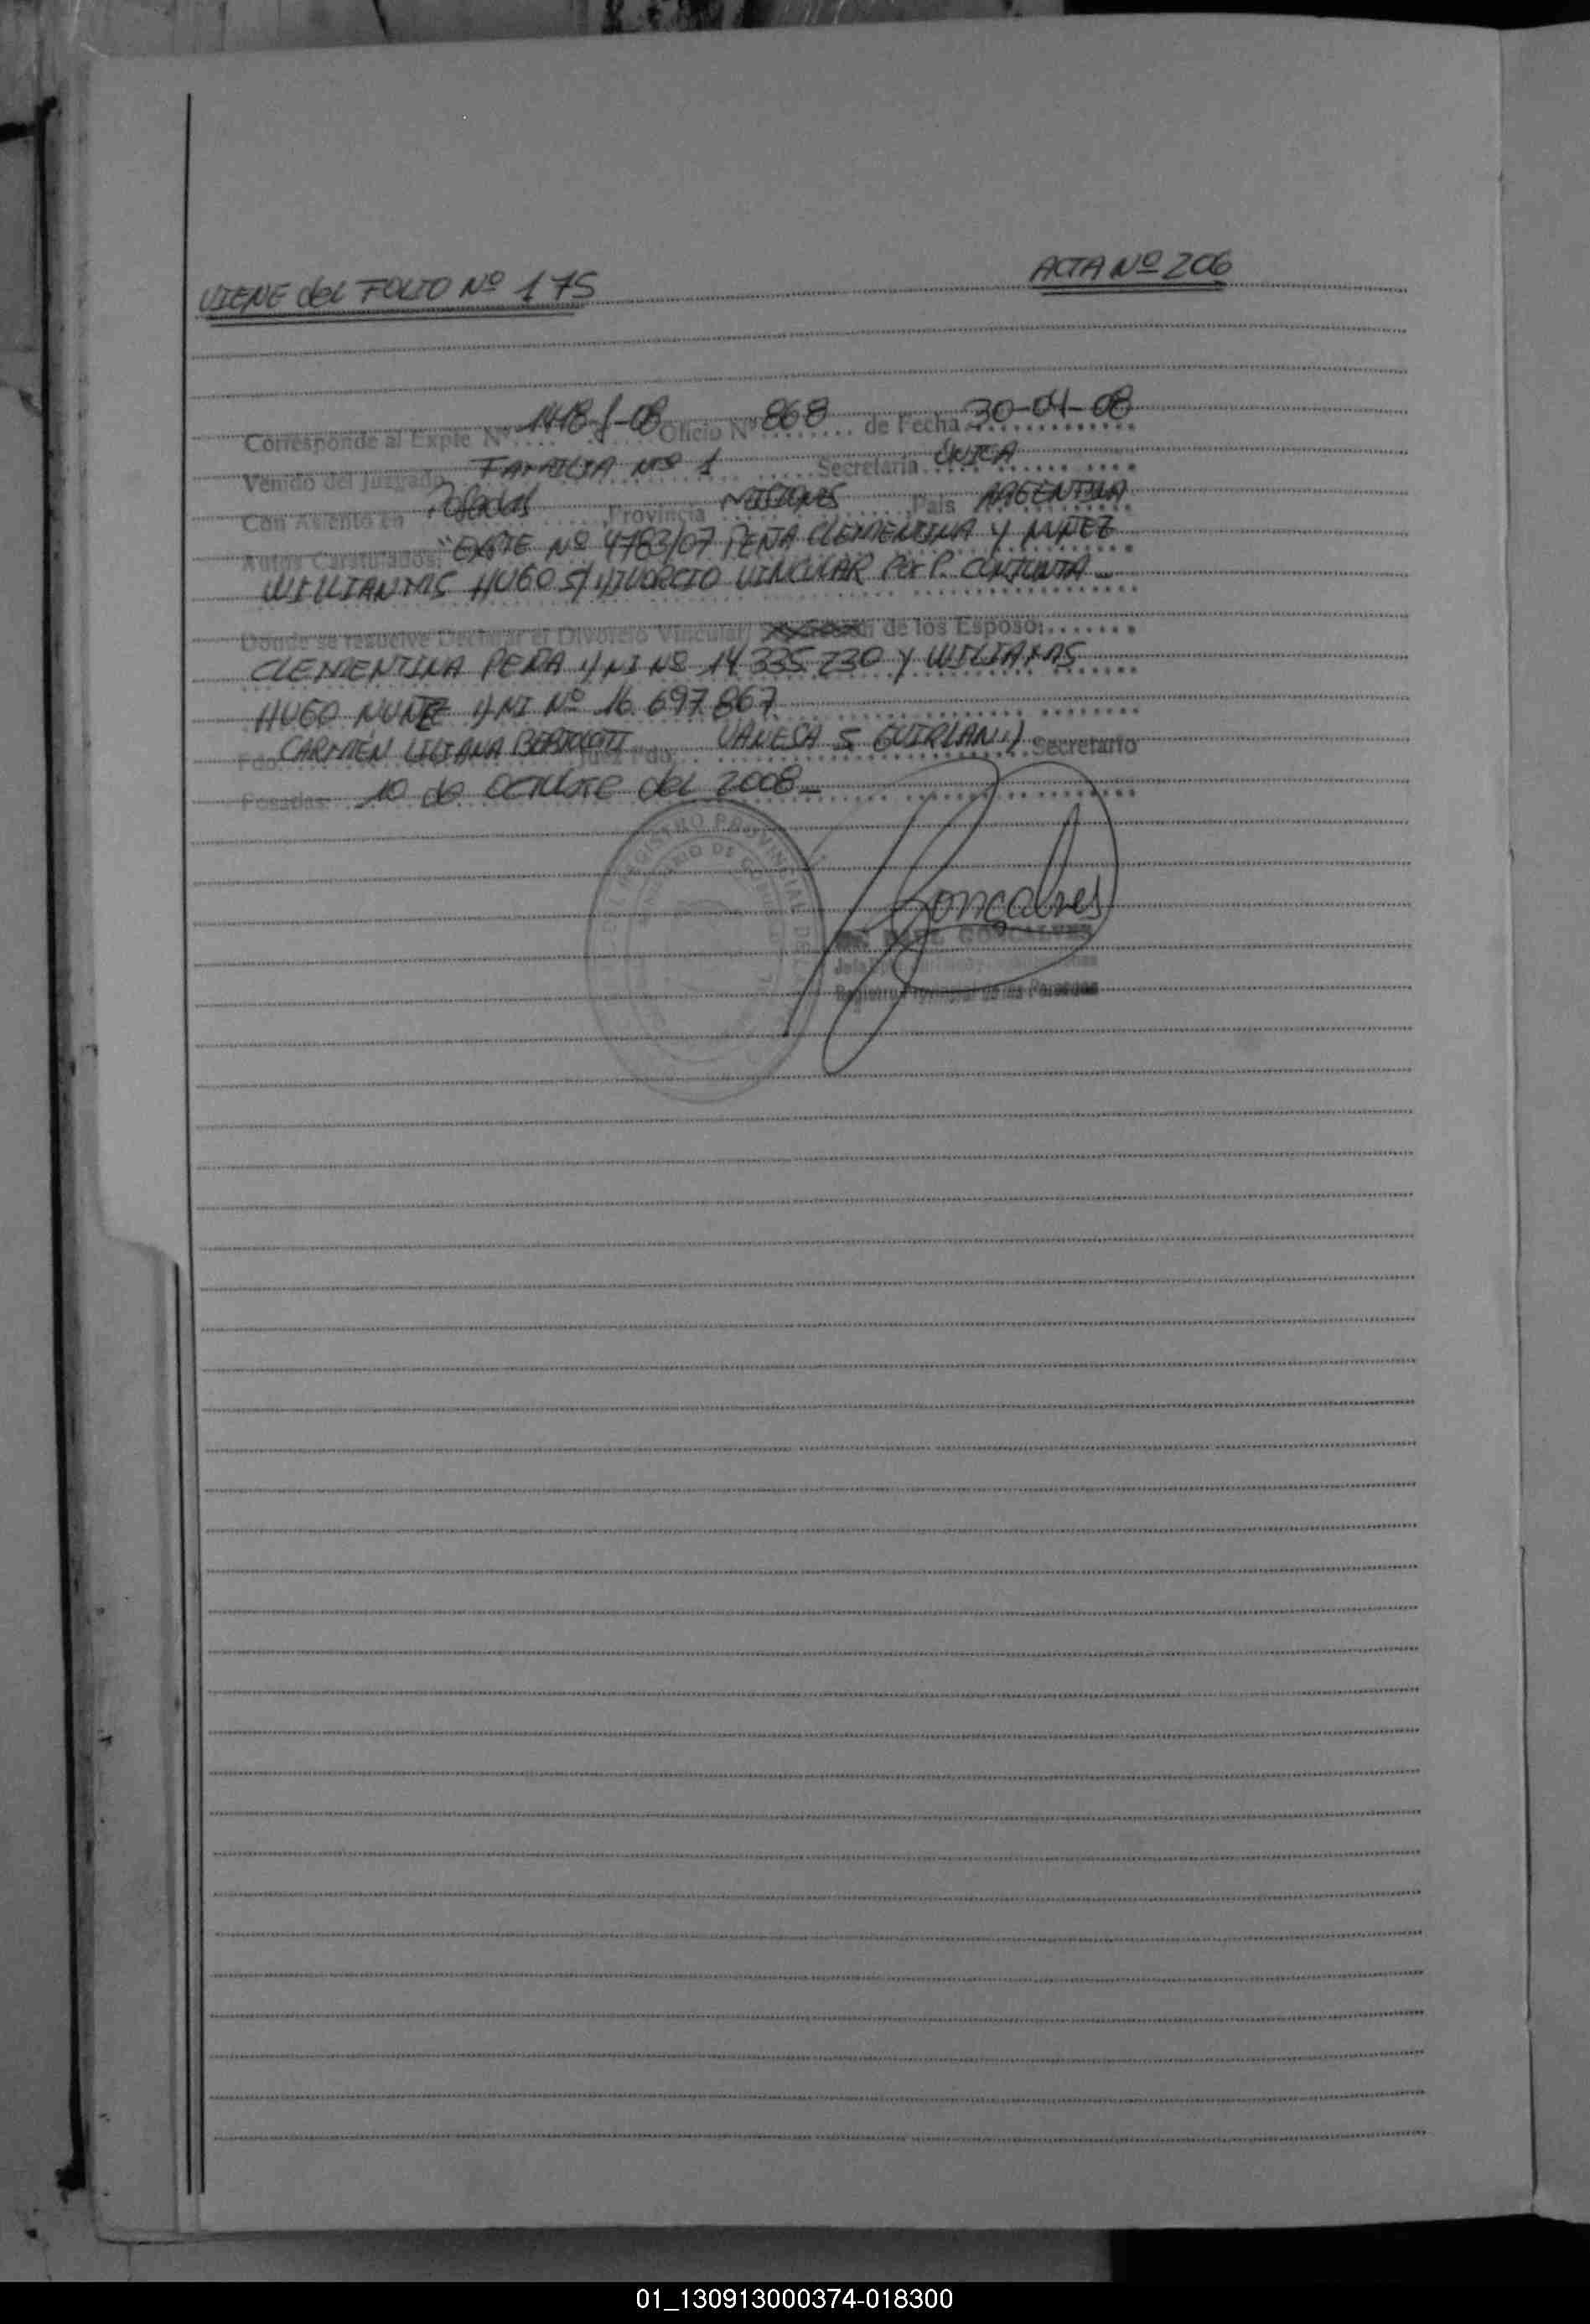 VIENE del FOLIO Nº 175
ACTA Nº 206
Corresponde al Expte Nº 1418-f-08 Oficio Nº 868 de Fecha 30-04-08
Venido del Juzgado FAMILIA Nº 1 Secretaría ÚNICA
Con Asiento en Posadas Provincia MISIONES País ARGENTINA
Autos Caratulados: "EXPTE Nº 4783/07 PEÑA CLEMENTINA Y NUÑEZ
WILLIANMS HUGO S/ DIVORCIO VINCULAR POR P. CONJUNTA
Donde se resuelve Declarar el Divorcio Vincular/ de los Esposo:
CLEMENTINA PEÑA DNI Nº 14.335.230 Y WILIAMS
HUGO NUÑEZ DNI Nº 16.697.867
Fdo. CARMEN LILIANA BERTOLOTTI Juez Fdo. VANESA S GUIRLAND Secretario
Posadas 10 de OCTUBRE del 2008
REGISTRO PROVINCIAL DE
MINISTERIO DE GOBIERNO
Gonçalves
GONCALVES
Registro Provincial de las Personas
01_130913000374-018300